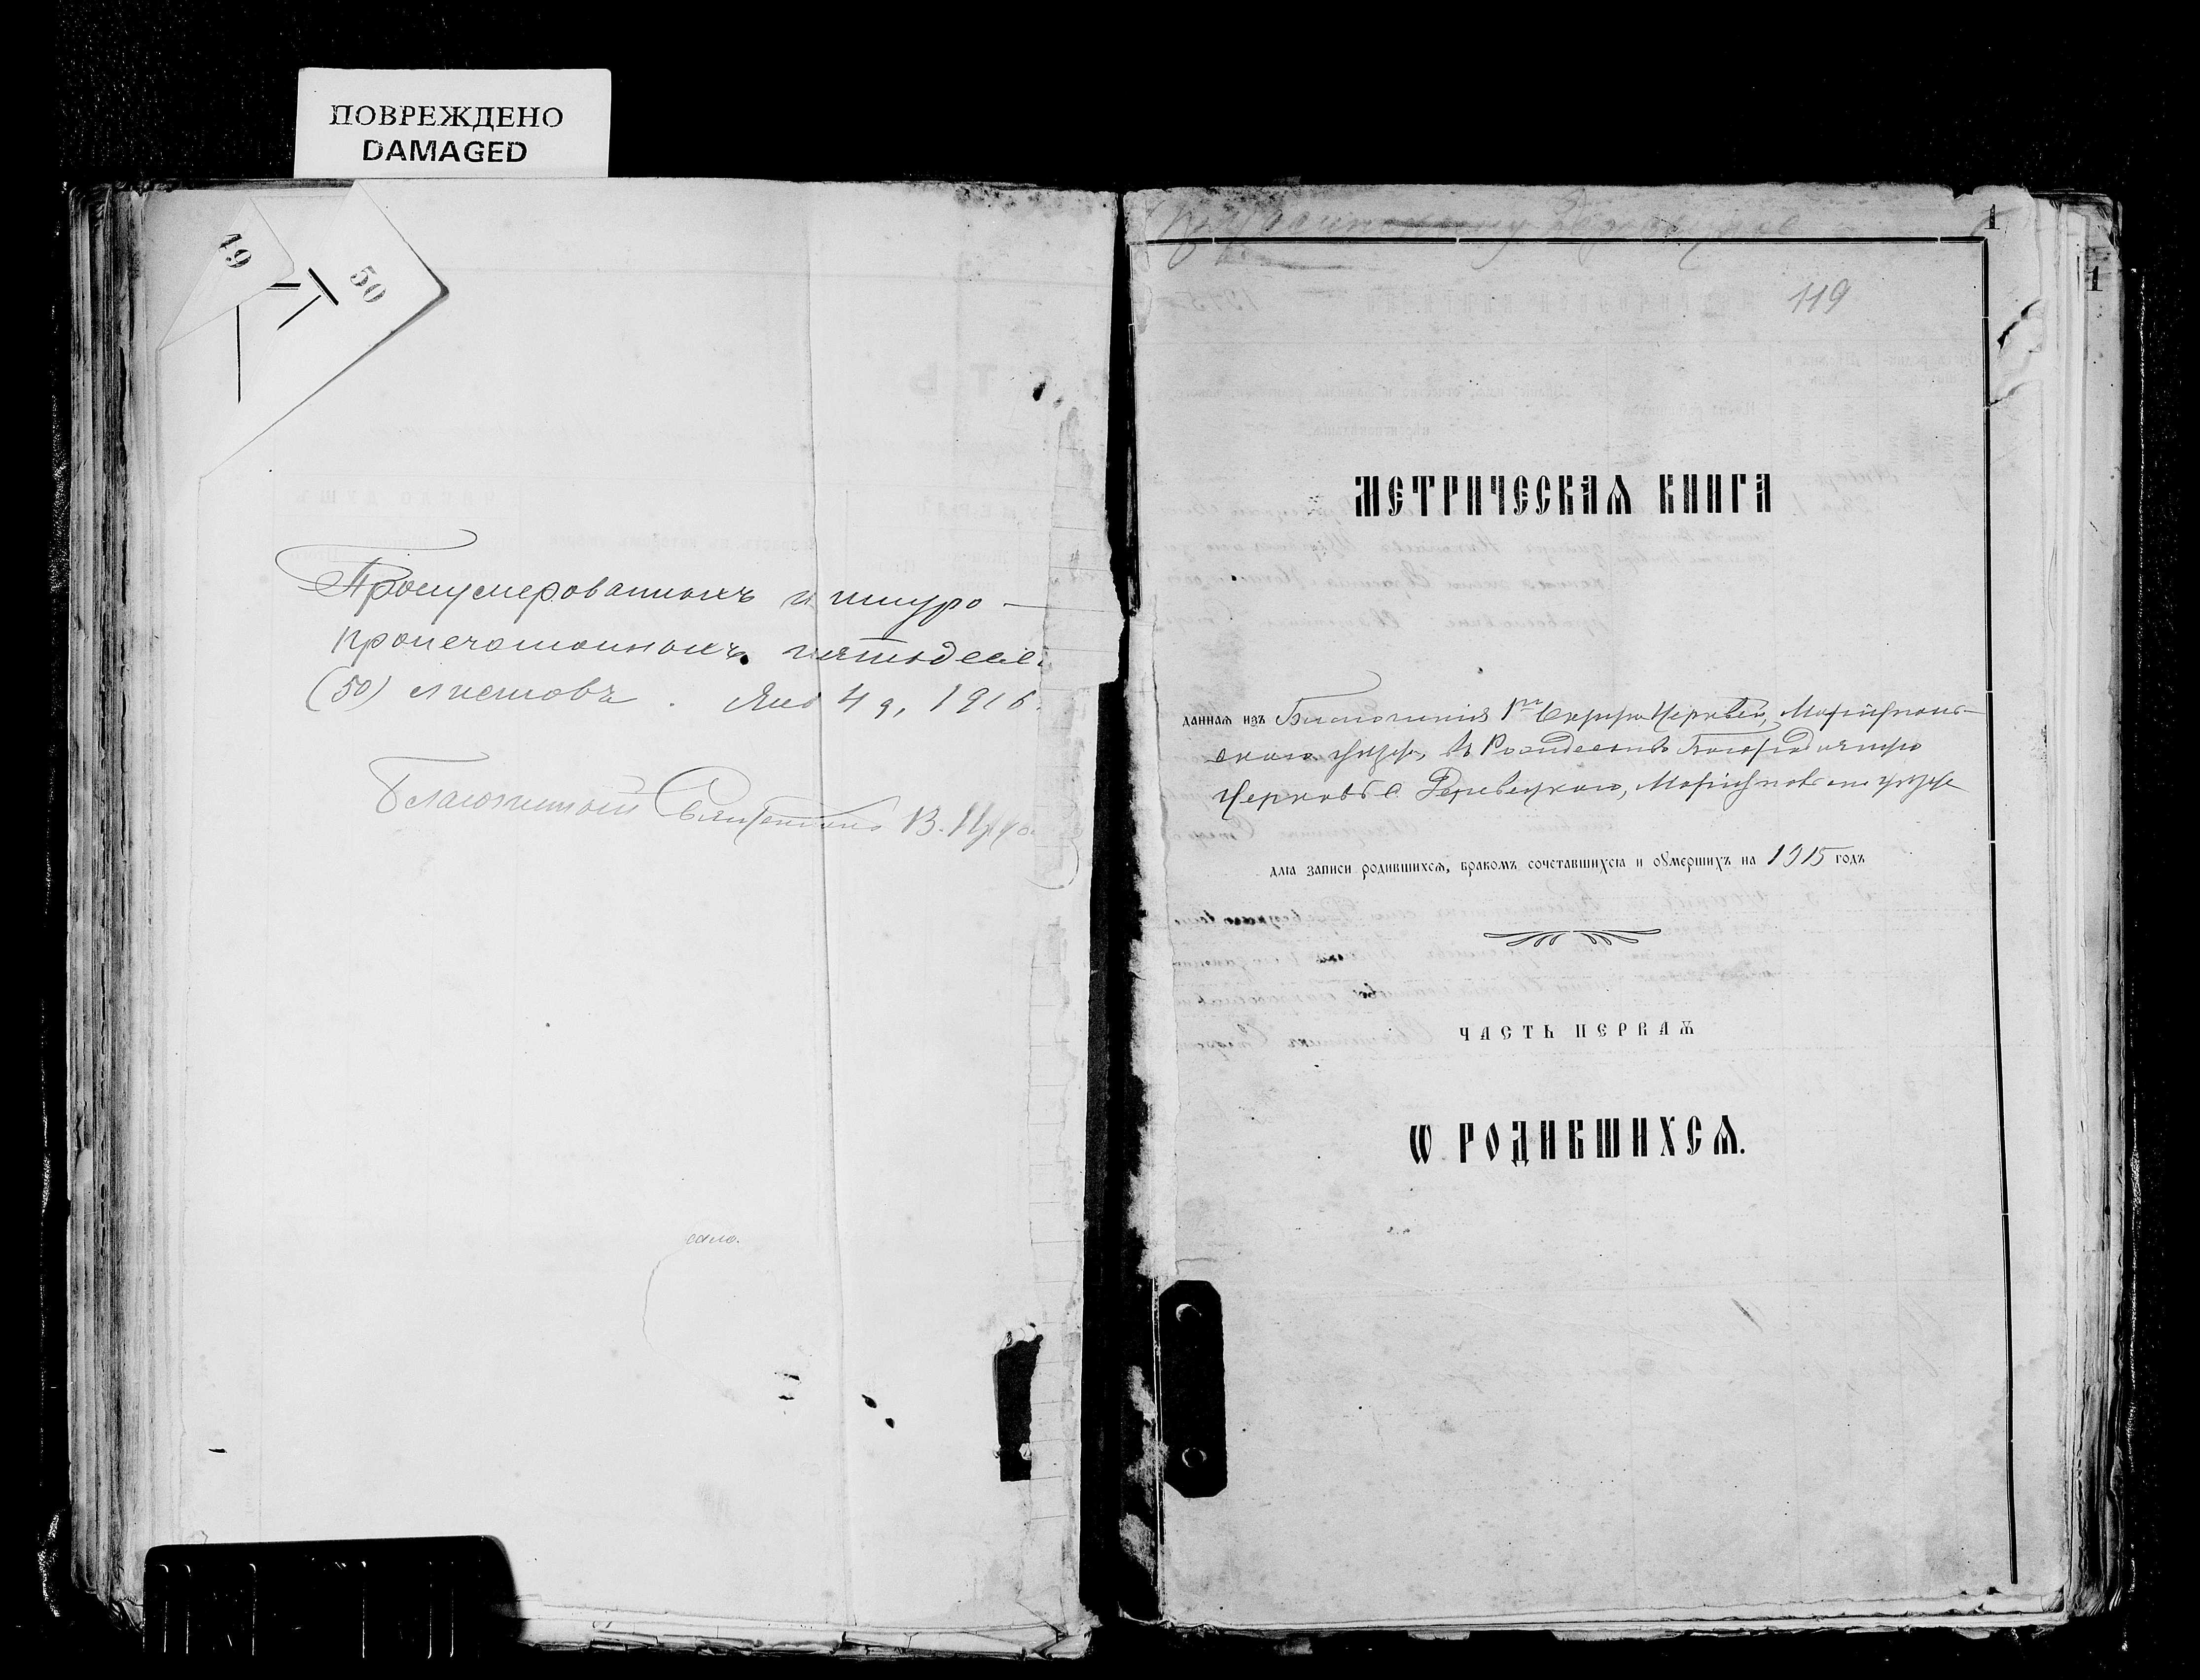 ПОВРЕЖДЕНО
DAMAGED
49
50
Пронумерованныхъ и шнуро-
пропечатанныхъ пятьдеся
(50) листовъ. Янв 4 д, 1915
Благочинный Священникъ В.
1
1
119
МЕТРИЧЕСКАѦ КНИГА
даннаѧ изъ Благочинія 1го Округа Церквей, Маріуполь-
скаго уѣзда, въ Рождество Богородичную
Церковь с Маріупольскаго уѣзда
длѧ записи родившихсѧ, бракомъ сочетавшихсѧ и оумершихъ на 1915 годъ
ЧАСТЬ ПЕРВАѦ
Ѡ РОДИВШИХСѦ.